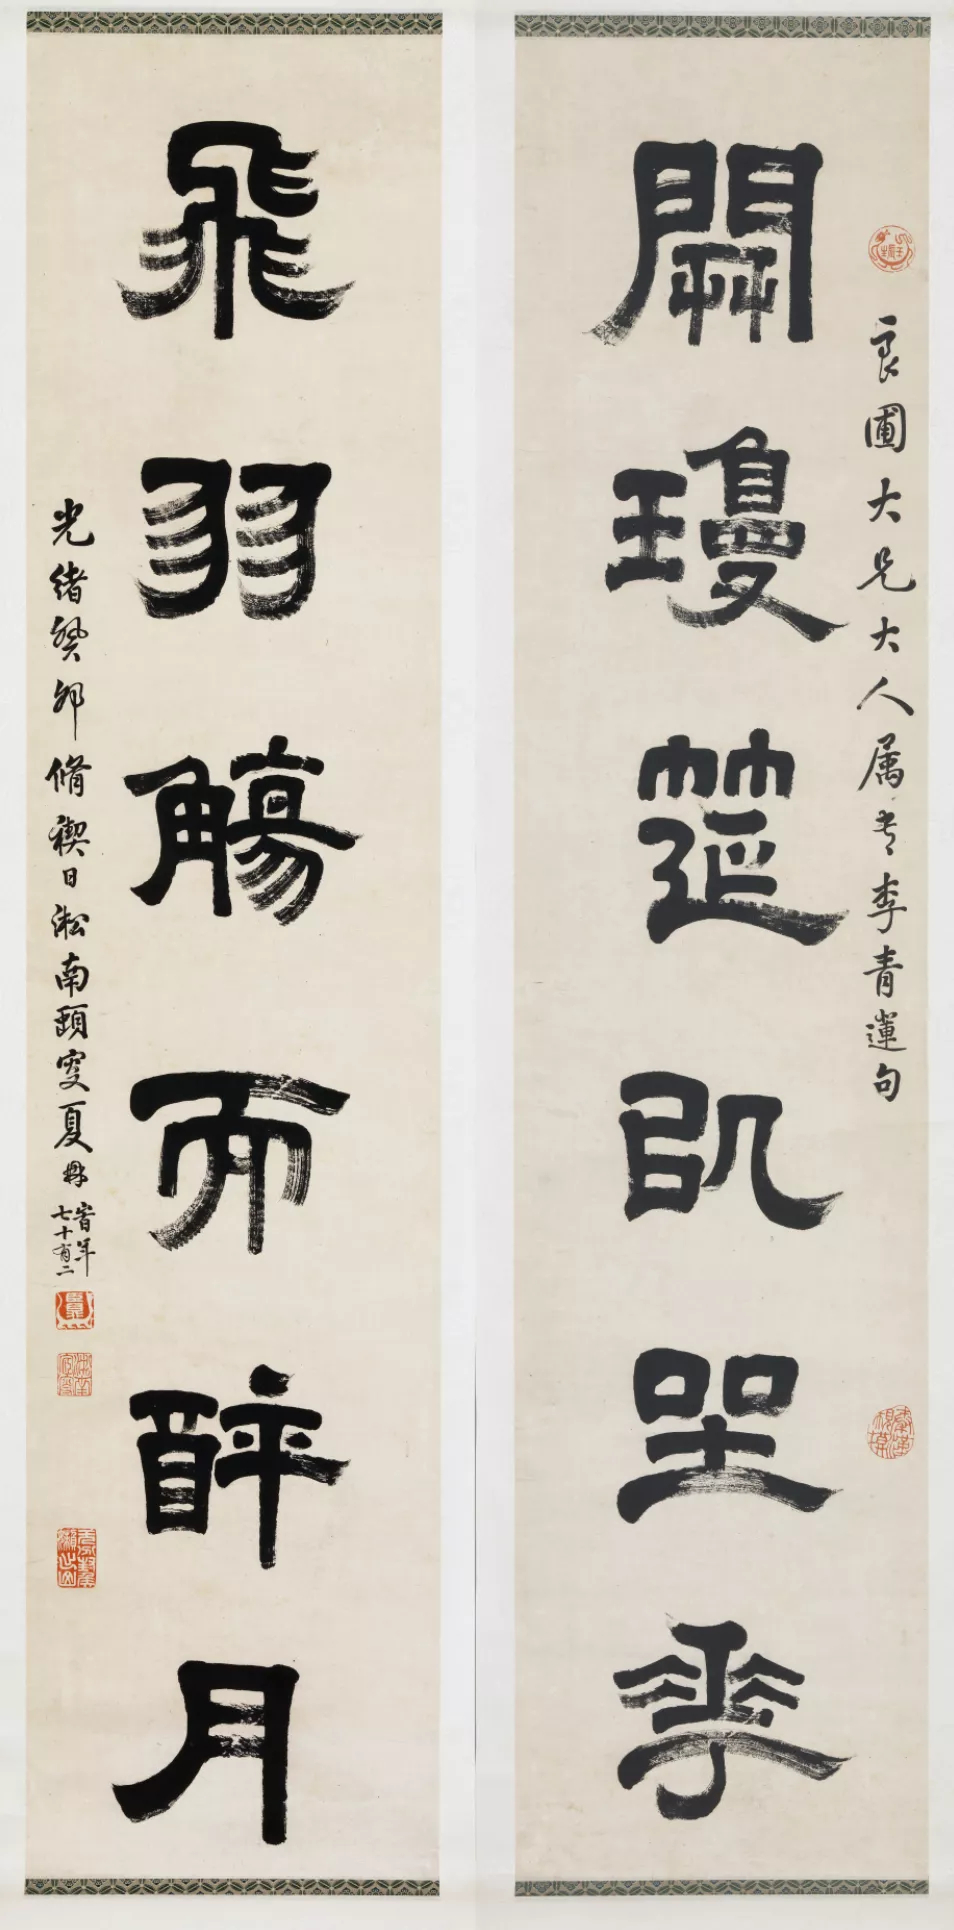 良圃大兄大人属书李青蓮句
開瓊筵以坐花
飛羽觴而醉月
光緒癸卯脩禊日淞南
夏
時年
七十有二